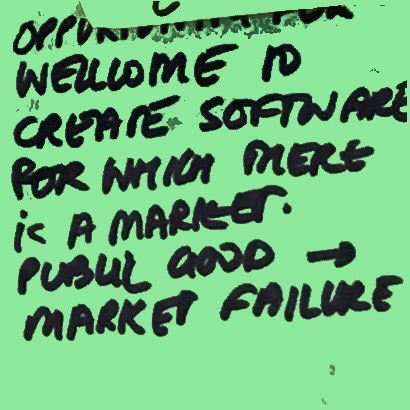 WELLCOME TO
CREATE SOFTWARE
FOR WHICH THERE
is A MARKET.
PUBLIC GOOD →
MARKET FAILURE